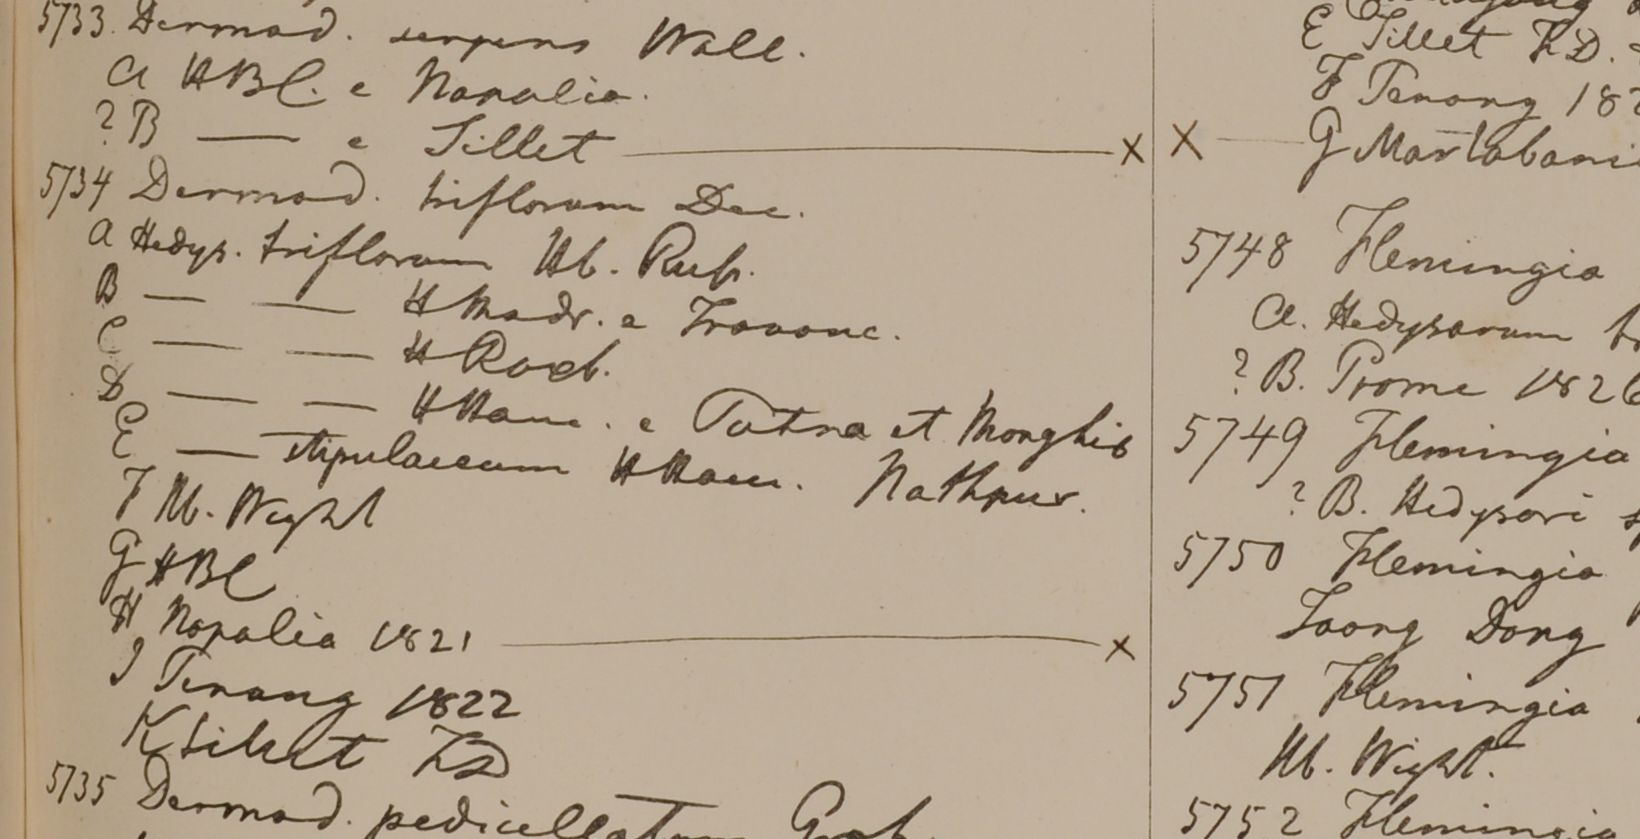 5733. Desmod. serpens Wall.
a HBC. e Napalia.
? B — e Sillet — x
5734 Desmod. triflorum Dec.
a Hedys. triflorum Hb. Russ.
B — — H Madr. e Travanc.
C — — H Roxb.
D — — H Ham. e Patna et Monghir
E — stipulaceum H Ham. Nathpur.
F Hb. Wight
G HBC
H Napalia 1821 — x
I Penang 1822
K Silhet FD
5735 Desmod. pedicellatum Grah.
E Sillet FD.
F Penang 182
x — G Martabania
5748 Flemingia
a. Hedysarum
? B. Prome 1826
5749 Flemingia
? B. Hedysari
5750 Flemingia
Taong Dong
5751 Flemingia
Hb. Wight.
5752 Flemingia